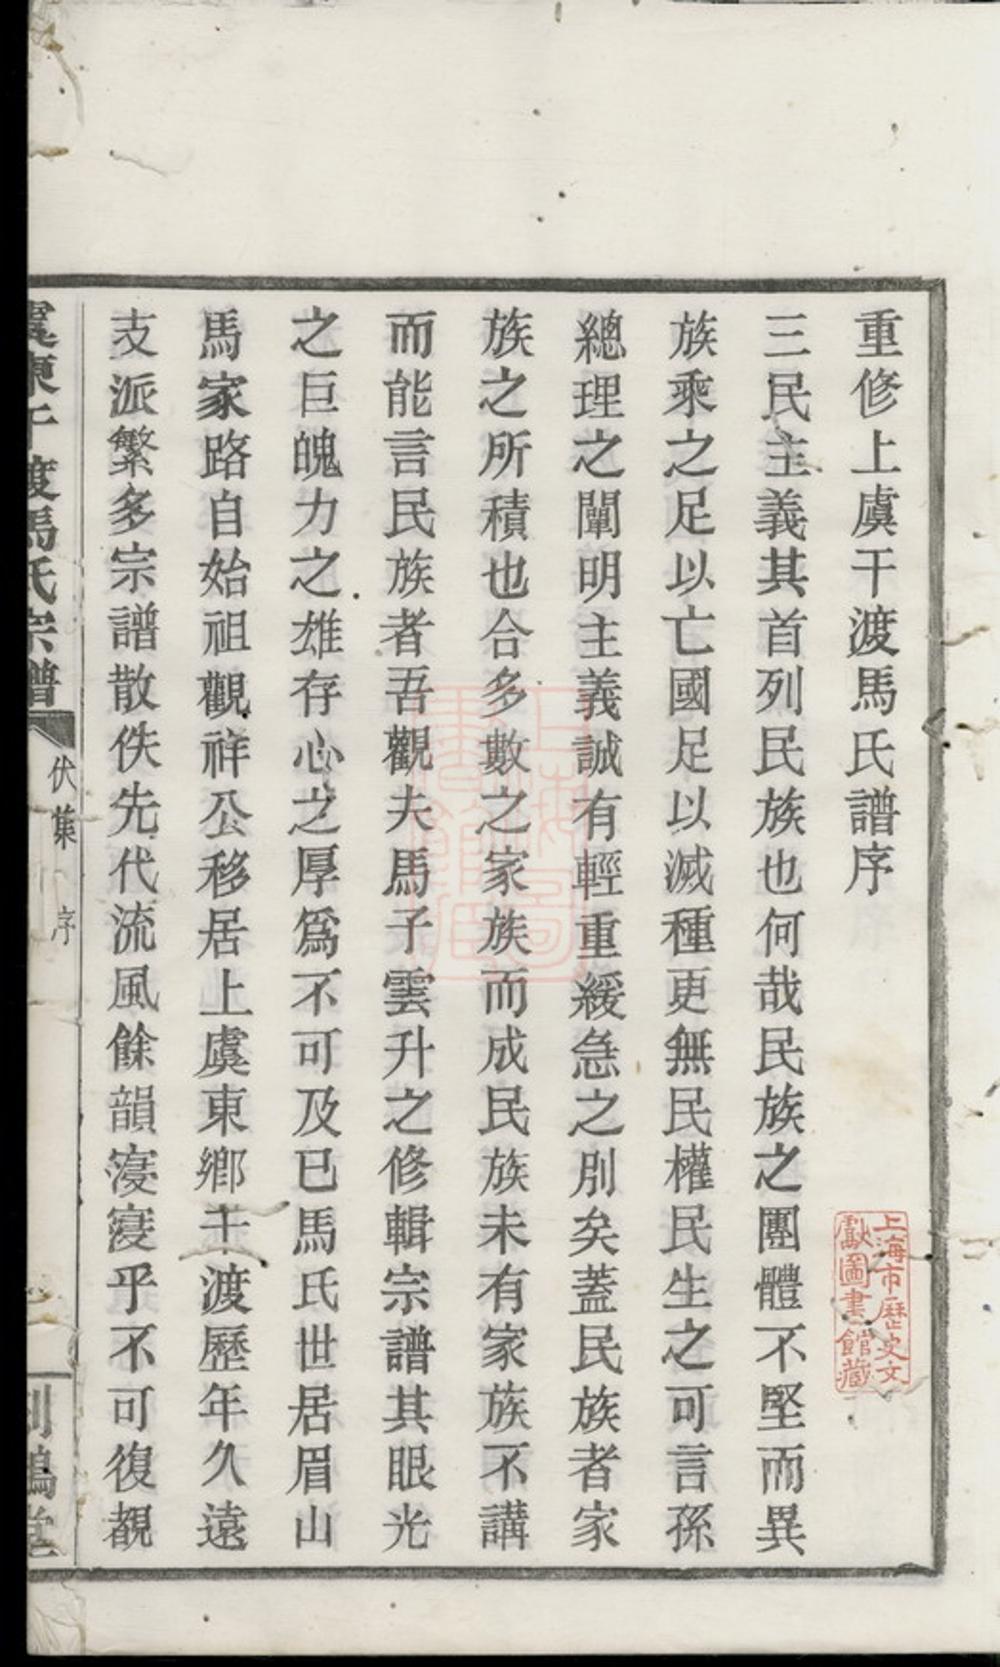 重修上虞干渡馬氏譜序
三民主義其首列民族也何哉民族之團體不堅而異
族乘之足以亡國足以滅種更無民權民生之可言孫
總理之闡明主義誠有輕重緩急之別矣蓋民族者家
族之所積也合多數之家族而成民族未有家族不講
而能言民族者吾觀夫馬子雲升之修輯宗譜其眼光
之巨魄力之雄存心之厚爲不可及已馬氏世居眉山
馬家路自始祖觀祥公移居上虞東鄉干渡歷年久遠
支派繁多宗譜散佚先代流風餘韻寖寖乎不可復覩
虞東干渡馬氏宗譜
伏集 序
上海市歷史文
獻圖書館藏